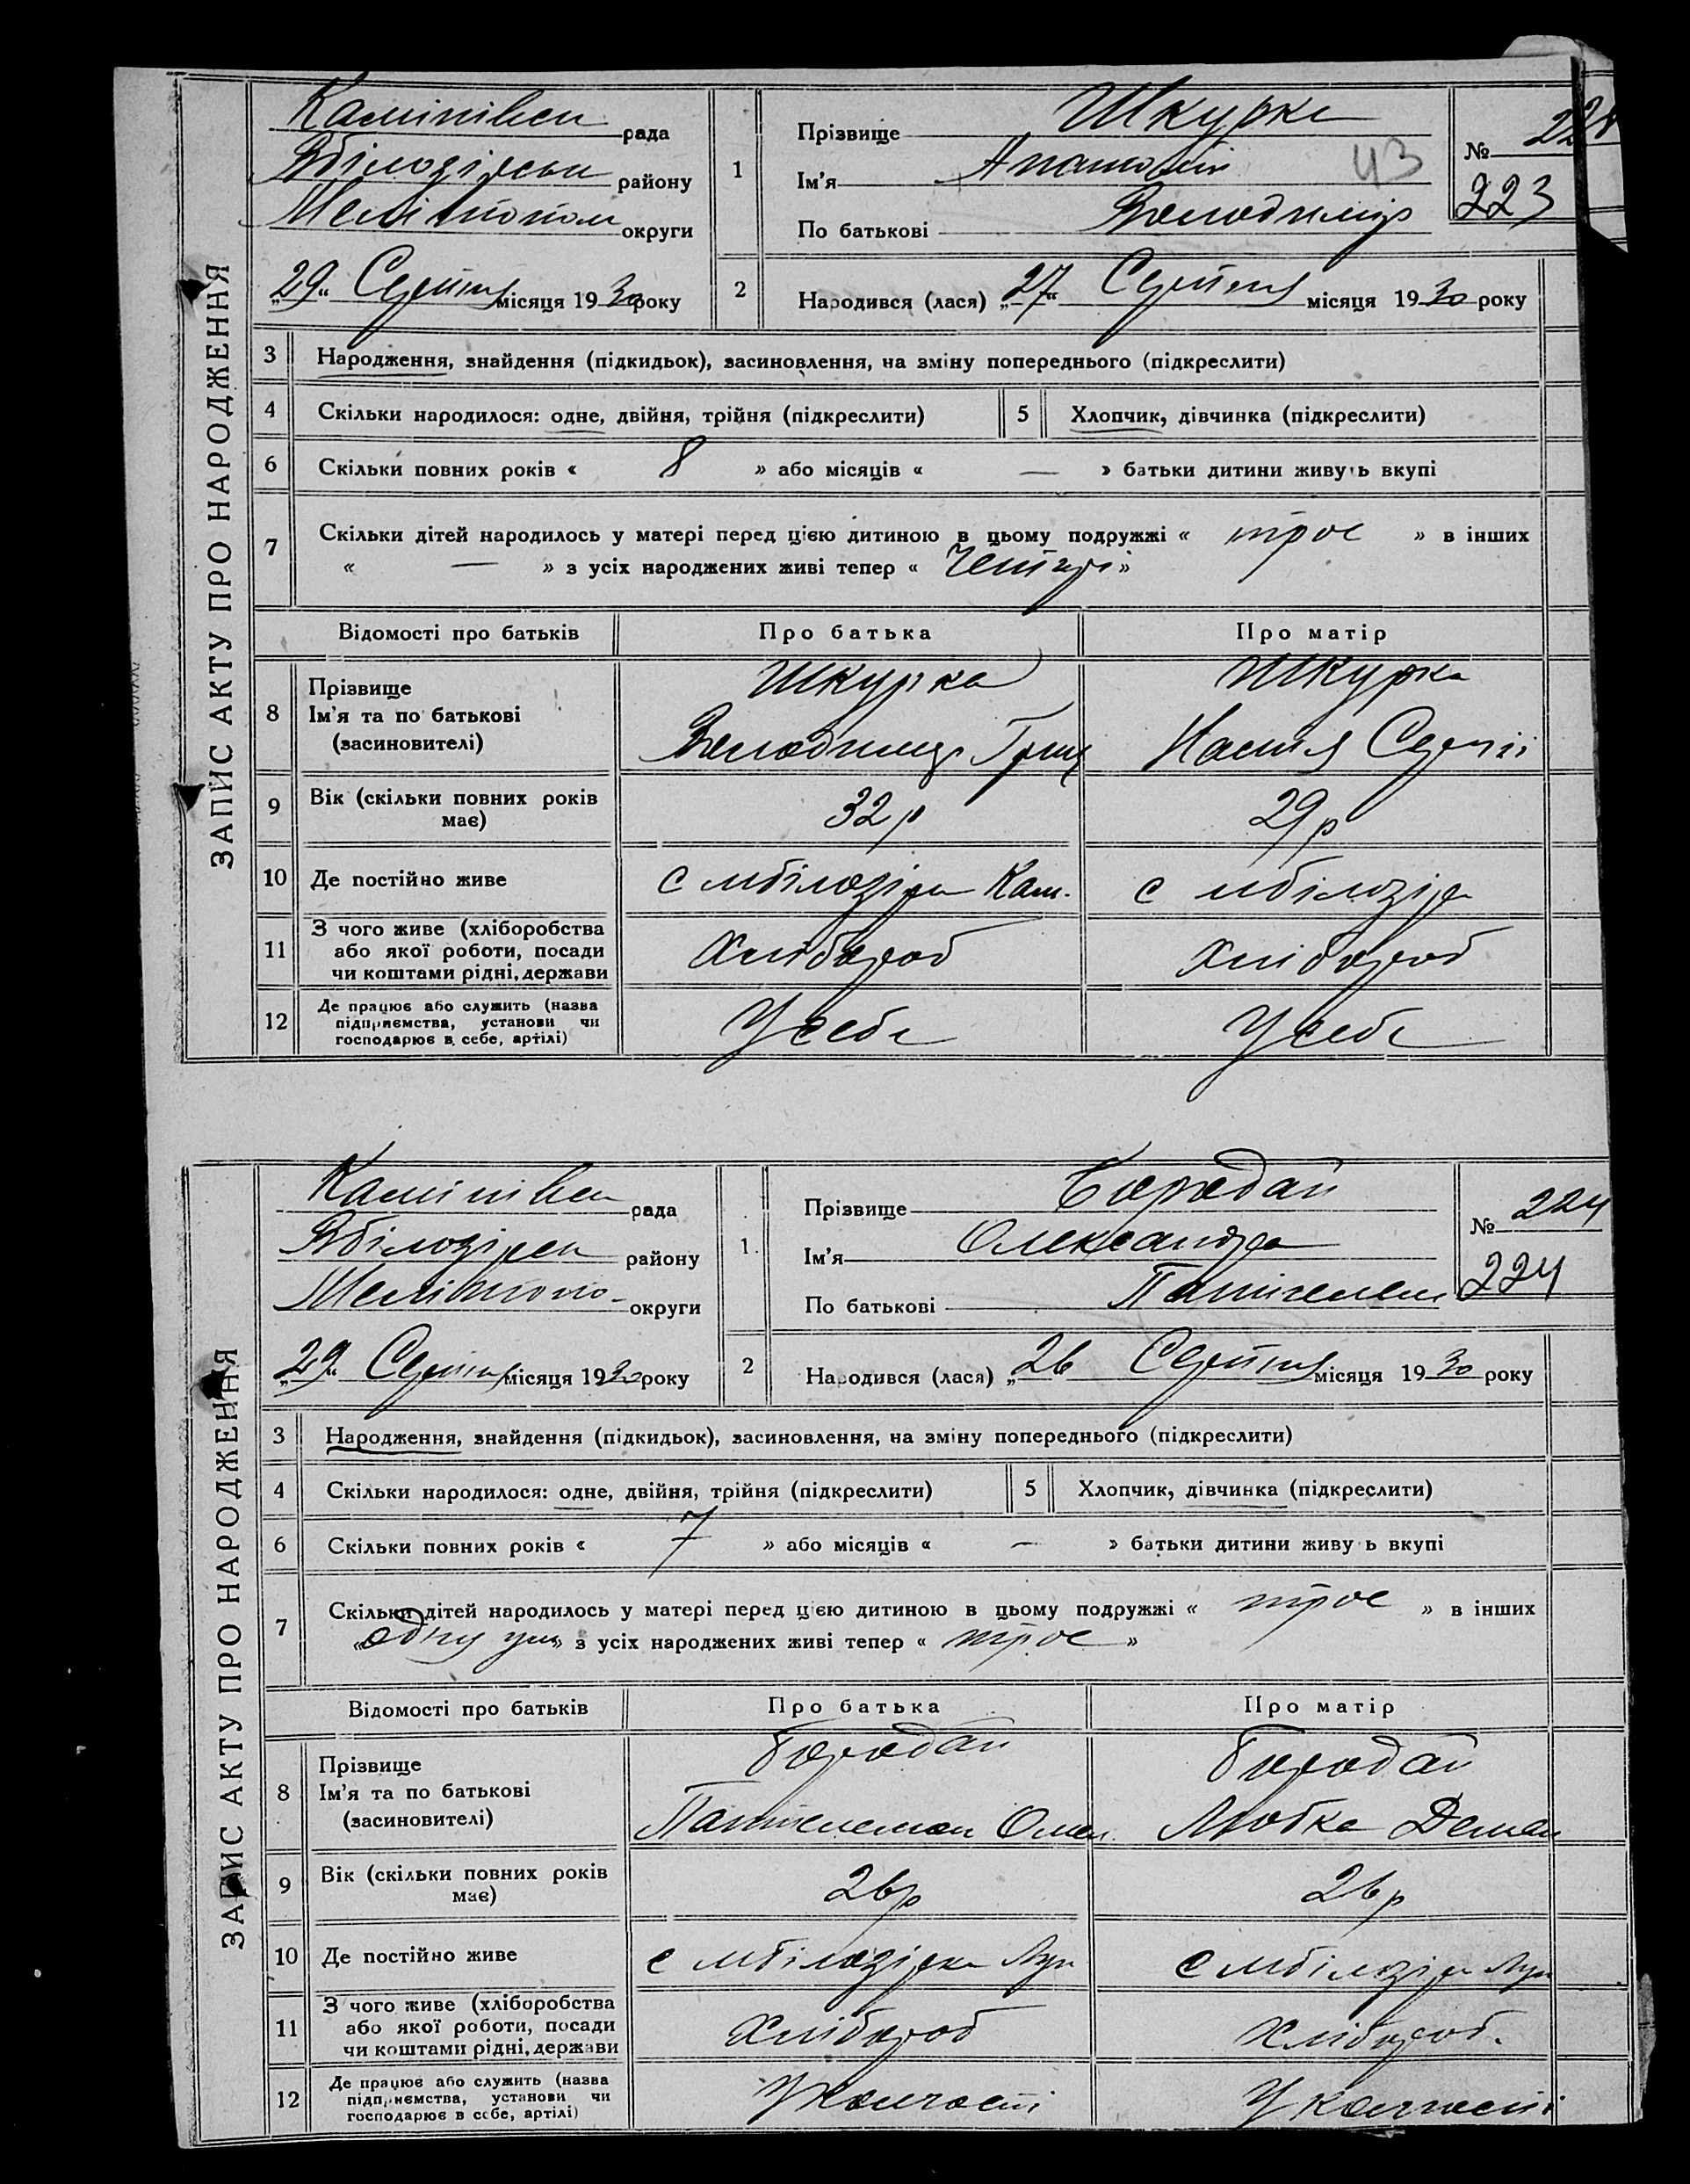 ЗАПИС АКТУ ПРО НАРОДЖЕННЯ
рада
району
округи
„29“ Серпня місяця 1930 року
1 Прізвище Шкурка
Ім'я
По батькові Володимір
43
№
223
2 Народився (лася) „27“ Серпня місяця 1930 року
3 Народження, знайдення (підкидьок), засиновлення, на зміну попереднього (підкреслити)
4 Скільки народилося: одне, двійня, трійня (підкреслити) 5 Хлопчик, дівчинка (підкреслити)
6 Скільки повних років « 8 » або місяців « — » батьки дитини живуть вкупі
7 Скільки дітей народилось у матері перед цією дитиною в цьому подружжі « троє » в інших
« — » з усіх народжених живі тепер « »
Відомості про батьків Про батька Про матір
8 Прізвище Шкурка Шкурка
Ім'я та по батькові
(засновителі) Володимір Гриц Настя Сергії
9 Вік (скільки повних років має) 32 р 29 р
10 Де постійно живе с мбілозірка Кам. с мбілозірк
11 З чого живе (хліборобства
або якої роботи, посади Хлібороб Хлібороб
чи коштами рідні, держави
12 Де працює або служить (назва
підприємства, установи чи У себе У себе
господарює в себе, артілі)
ЗАПИС АКТУ ПРО НАРОДЖЕННЯ
рада
району
округи
„29“ Серпня місяця 1930 року
1. Прізвище Бородай
Ім'я Олександра
По батькові
№ 224
224
2 Народився (лася) „26 Серпня місяця 1930 року
3 Народження, знайдення (підкидьок), засиновлення, на зміну попереднього (підкреслити)
4 Скільки народилося: одне, двійня, трійня (підкреслити) 5 Хлопчик, дівчинка (підкреслити)
6 Скільки повних років « 7 » або місяців « — » батьки дитини живуь вкупі
7 Скільки дітей народилось у матері перед цією дитиною в цьому подружжі « троє » в інших
« » з усіх народжених живі тепер « троє »
Відомості про батьків Про батька Про матір
8 Прізвище Бородай Бородай
Ім'я та по батькові
(засиновителі) Пантелемон Омел. Любка Демян
9 Вік (скільки повних років має) 26 р 26 р
10 Де постійно живе с мбілозірка с мбілозірк
11 З чого живе (хліборобства
або якої роботи, посади Хлібороб Хлібороб.
чи коштами рідні, держави
12 Де працює або служить (назва
підприємства, установи чи
господарює в себе, артілі)